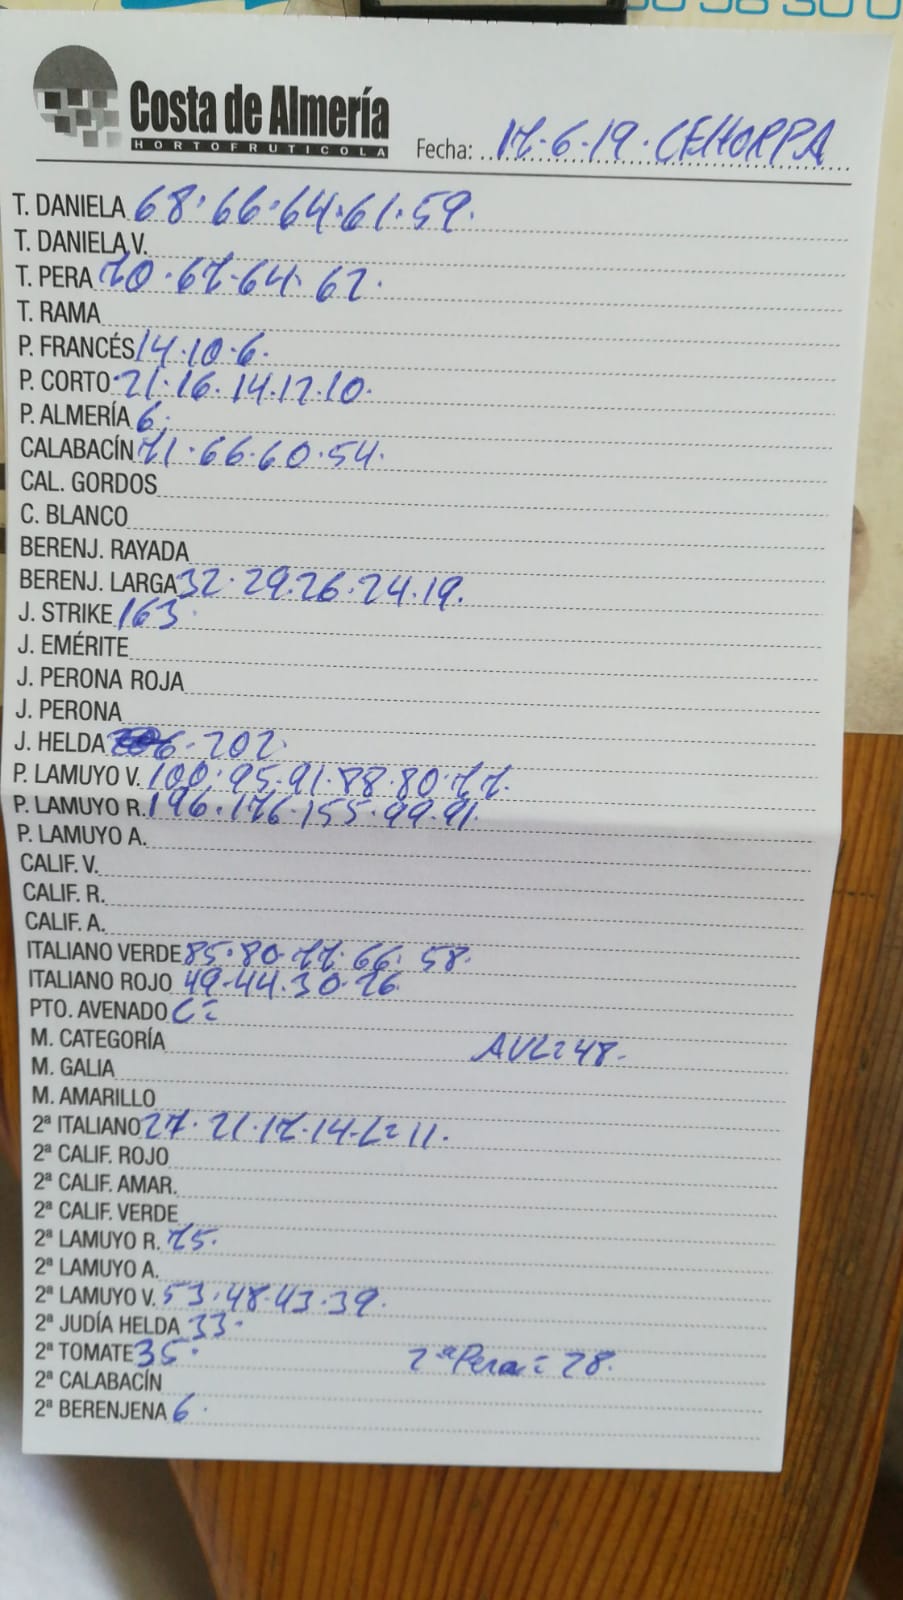 Costa de Almería
HORTOFRUTICOLA
Fecha: 17-6-19. CEHORPA
T. DANIELA 68.66.64.61.59.
T. DANELA V.
T. PERA 70.67.64.62.
T. RAMA
P. FRANCÉS 14.10.6.
P. CORTO 21.16.14.12.10.
P. ALMERÍA 6.
CALABACÍN 71.66.60.54.
CAL. GORDOS
C. BLANCO
BERENJ. RAYADA
BERENJ. LARGA 32.29.26.24.19.
J. STRIKE 163.
J. EMÉRITE
J. PERONA ROJA
J. PERONA
J. HELDA 206.202.
P. LAMUYO V. 100.95.91.88.80.77.
P. LAMUYO R. 196.176.155.99.91.
P. LAMUYO A.
CALIF. V.
CALIF. R.
CALIF. A.
ITALIANO VERDE 85.80.77.66.58.
ITALIANO ROJO 49.44.30.26.
PTO. AVENADO C=
M. CATEGORÍA AVL=48.
M. GALIA
M. AMARILLO
2ª ITALIANO 27.21.17.14.L=11.
2ª CALIF. ROJO
2ª CALIF. AMAR.
2ª CALIF. VERDE
2ª LAMUYO R. 75.
2ª LAMUYO A.
2ª LAMUYO V. 53.48.43.39.
2ª JUDÍA HELDA 33.
2ª TOMATE 35. 2ª Pera=28.
2ª CALABACÍN
2ª BERENJENA 6.